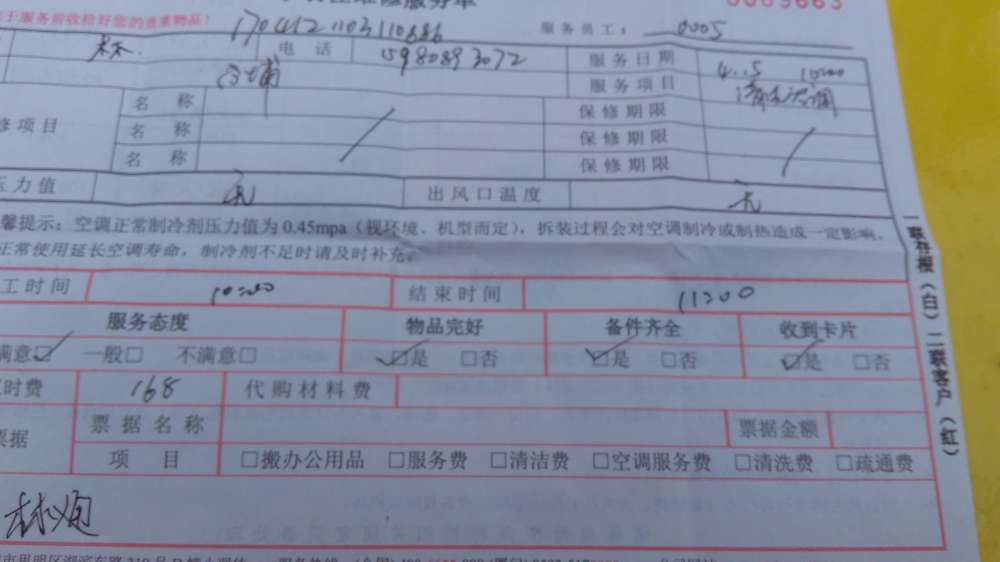 于服务前收检好您的贵重物品!
服务员工: 0005
1704121103110886
林 电 话 15980893072 服务日期 4..5 10:00
服务项目 清洗空调
修项目 名 称 / 保修期限 /
名 称 保修期限
名 称 保修期限
压力值 无 出风口温度 无
馨提示：空调正常制冷剂压力值为 0.45mpa（视环境、机型而定），拆装过程会对空调制冷或制热造成一定影响。
正常使用延长空调寿命，制冷剂不足时请及时补充。
工时间 10:00 结束时间 11:00
服务态度 物品完好 备件齐全 收到卡片
满意☑ 一般□ 不满意□ ☑是 □否 ☑是 □否 ☑是 □否
时费 168 代购材料费
票据 票据名称 票据金额
项 目 □搬办公用品 □服务费 □清洁费 □空调服务费 □清洗费 □疏通费
一联存根（白）二联客户（红）